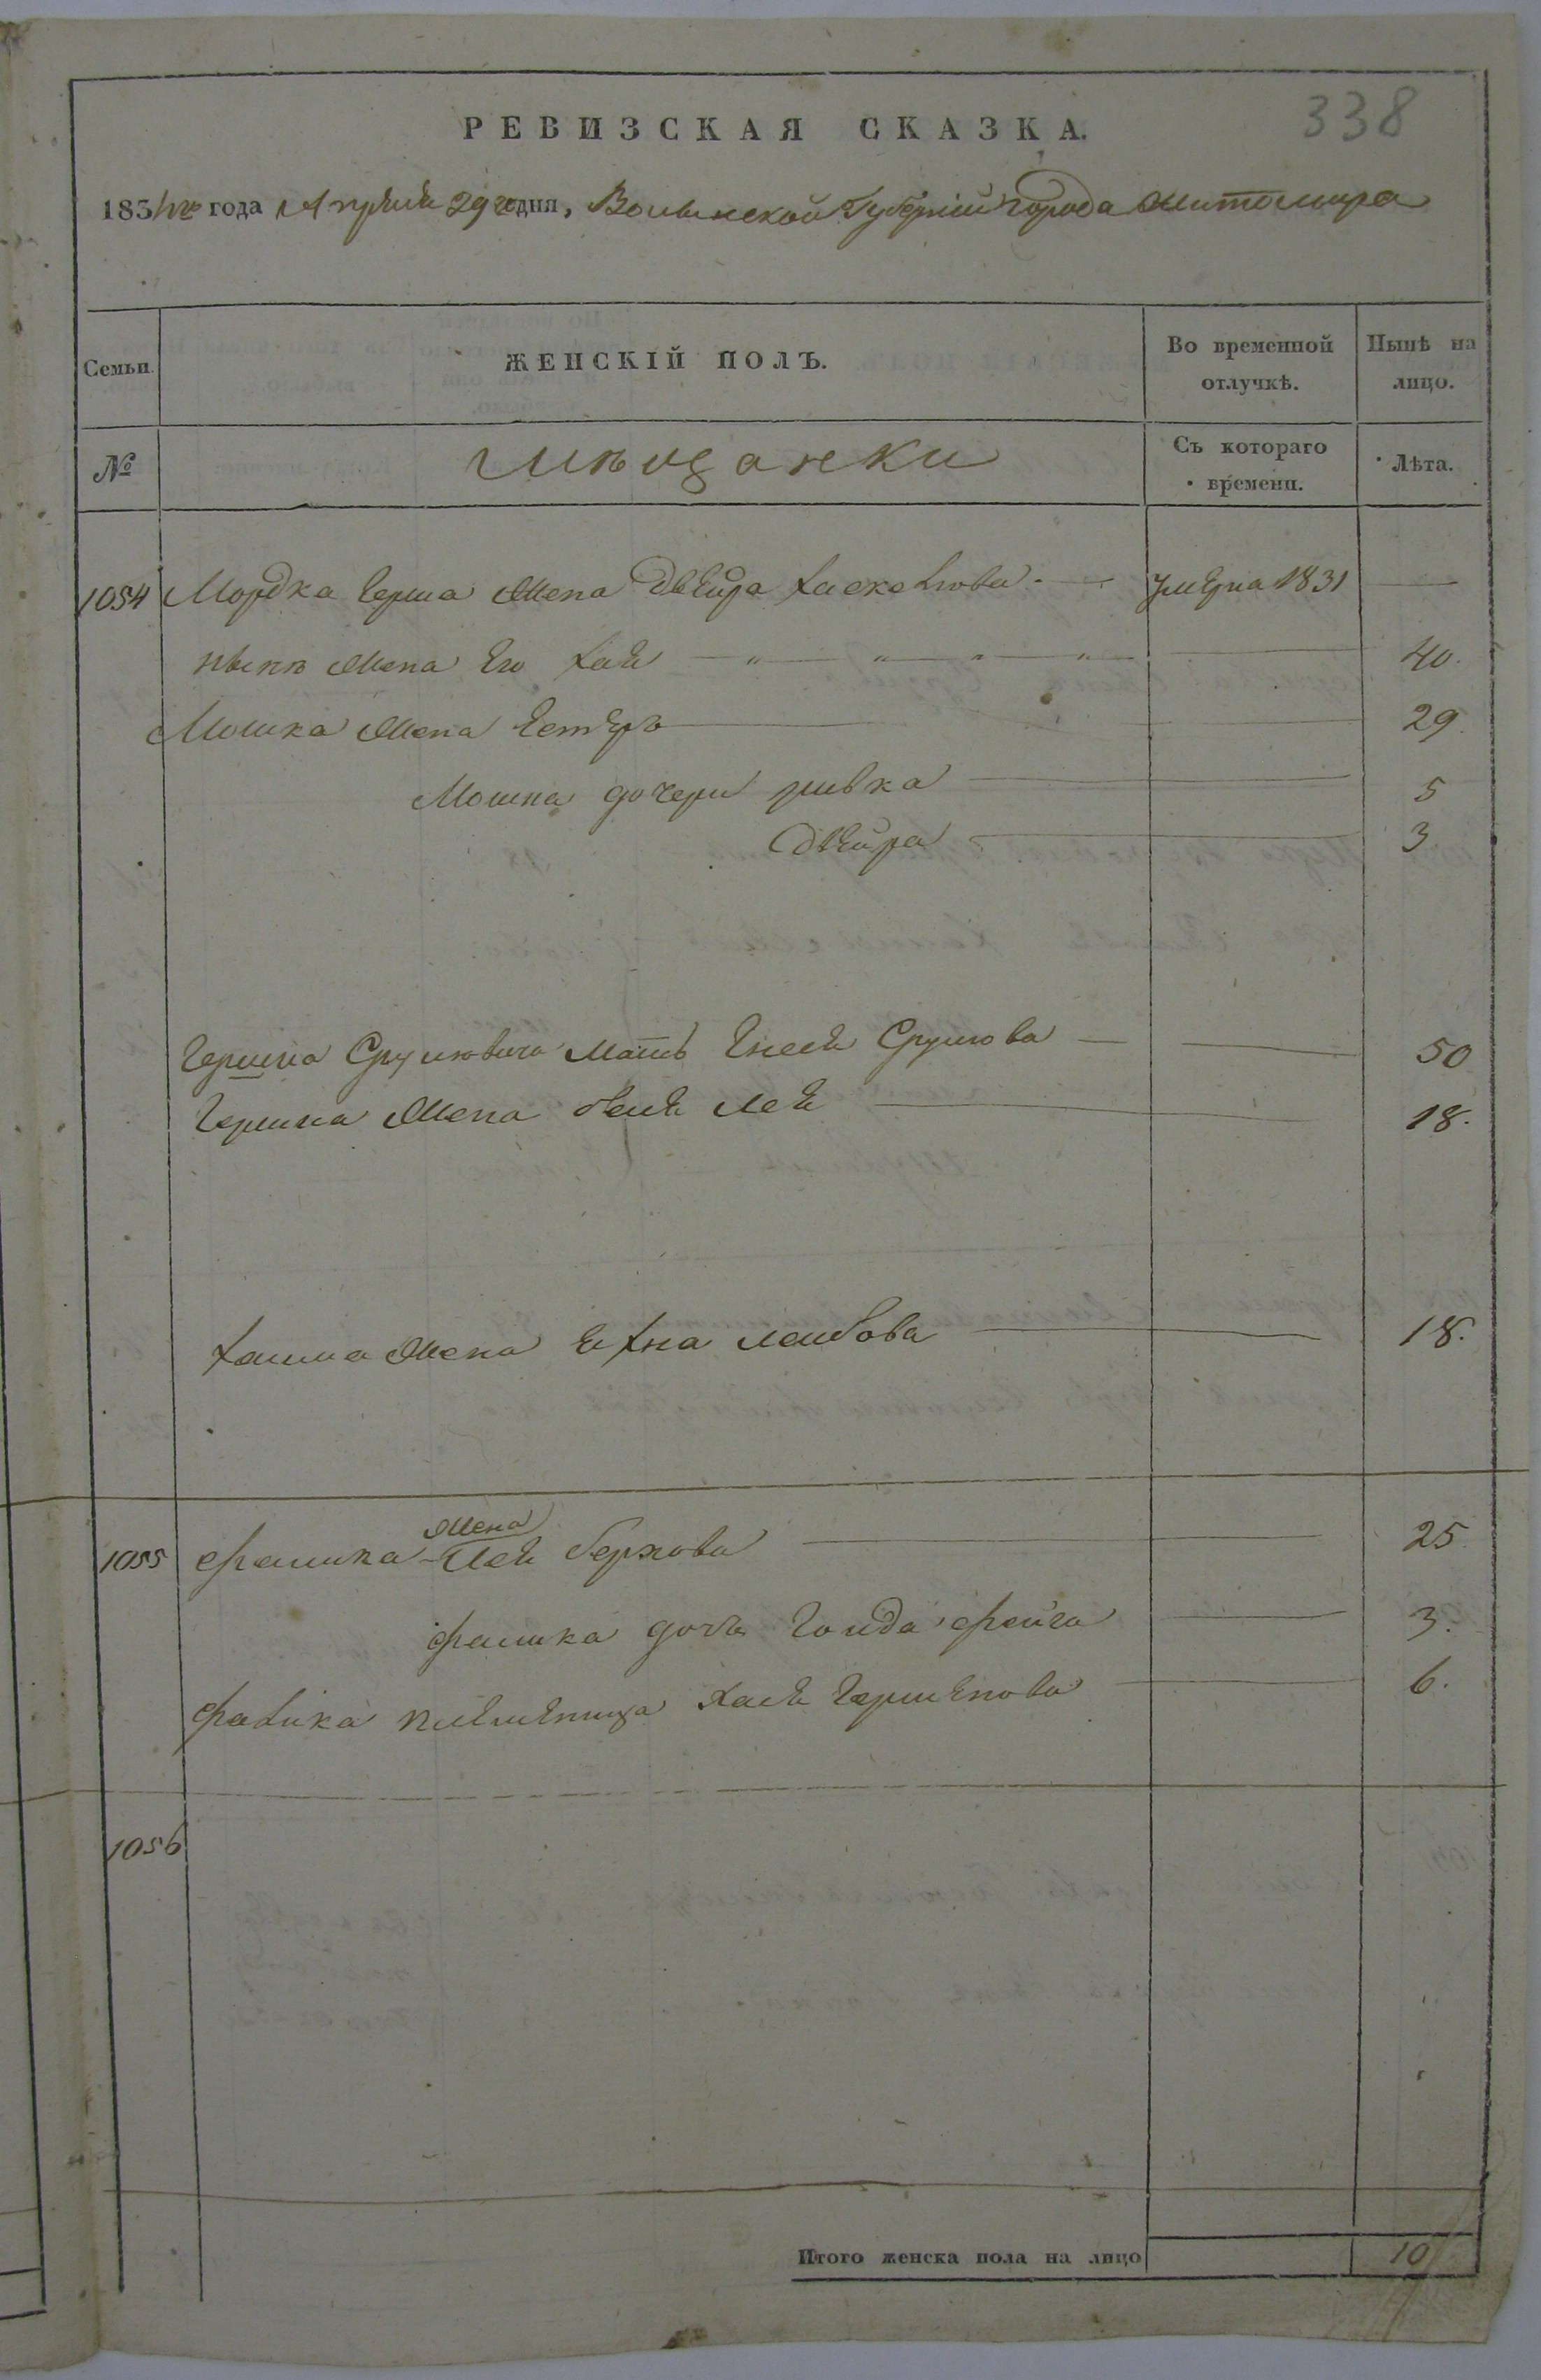 338
РЕВИЗСКАЯ СКАЗКА.
1834го года Апреля 29го дня, Волынской Губерніи города Житомира
Семьи. ЖЕНСКІЙ ПОЛЪ. Во временной отлучкѣ. Нынѣ на лицо.
№ мѣщанки Съ котораго времени. Лѣта.
1054 Мордка Герша Жена Двейра Хаскелева умерла 1831
нынѣ Жена Его Хая 40.
Мошка Жена Естеръ 29.
Мошка дочери ривка 5
Двейра 3
Гершка Срулковича Мать Енесея Срулова 50
Гершка Жена бейля лея 18.
Хаима Жена Ехна лейбова 18.
1055 Фалика Жена Лея беркова 25
фалика дочь Голда фейга 3.
Фалика племеница Хася Гершенова 6.
1056
Итого женска пола на лицо 10